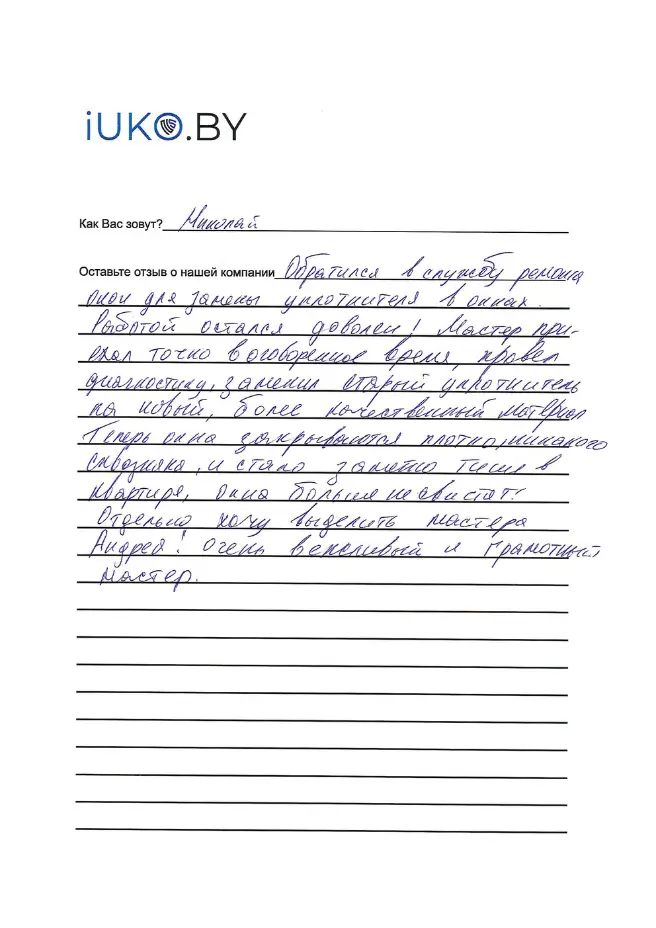 iUKO.BY
Как Вас зовут? Николай
Оставьте отзыв о нашей компании Обратился в службу ремонта
окон для замены уплотнителя в окнах.
Работой остался доволен! Мастер при-
ехал точно в оговоренное время, провел
диагностику, заменил старый уплотнитель
на новый, более качественный материал
Теперь окна закрываются плотно, никакого
сквозняка, и стало заметно тише в
квартире, окна больше не свистят!
Отдельно хочу выделить мастера
Андрея! Очень вежливый и грамотный
мастер.